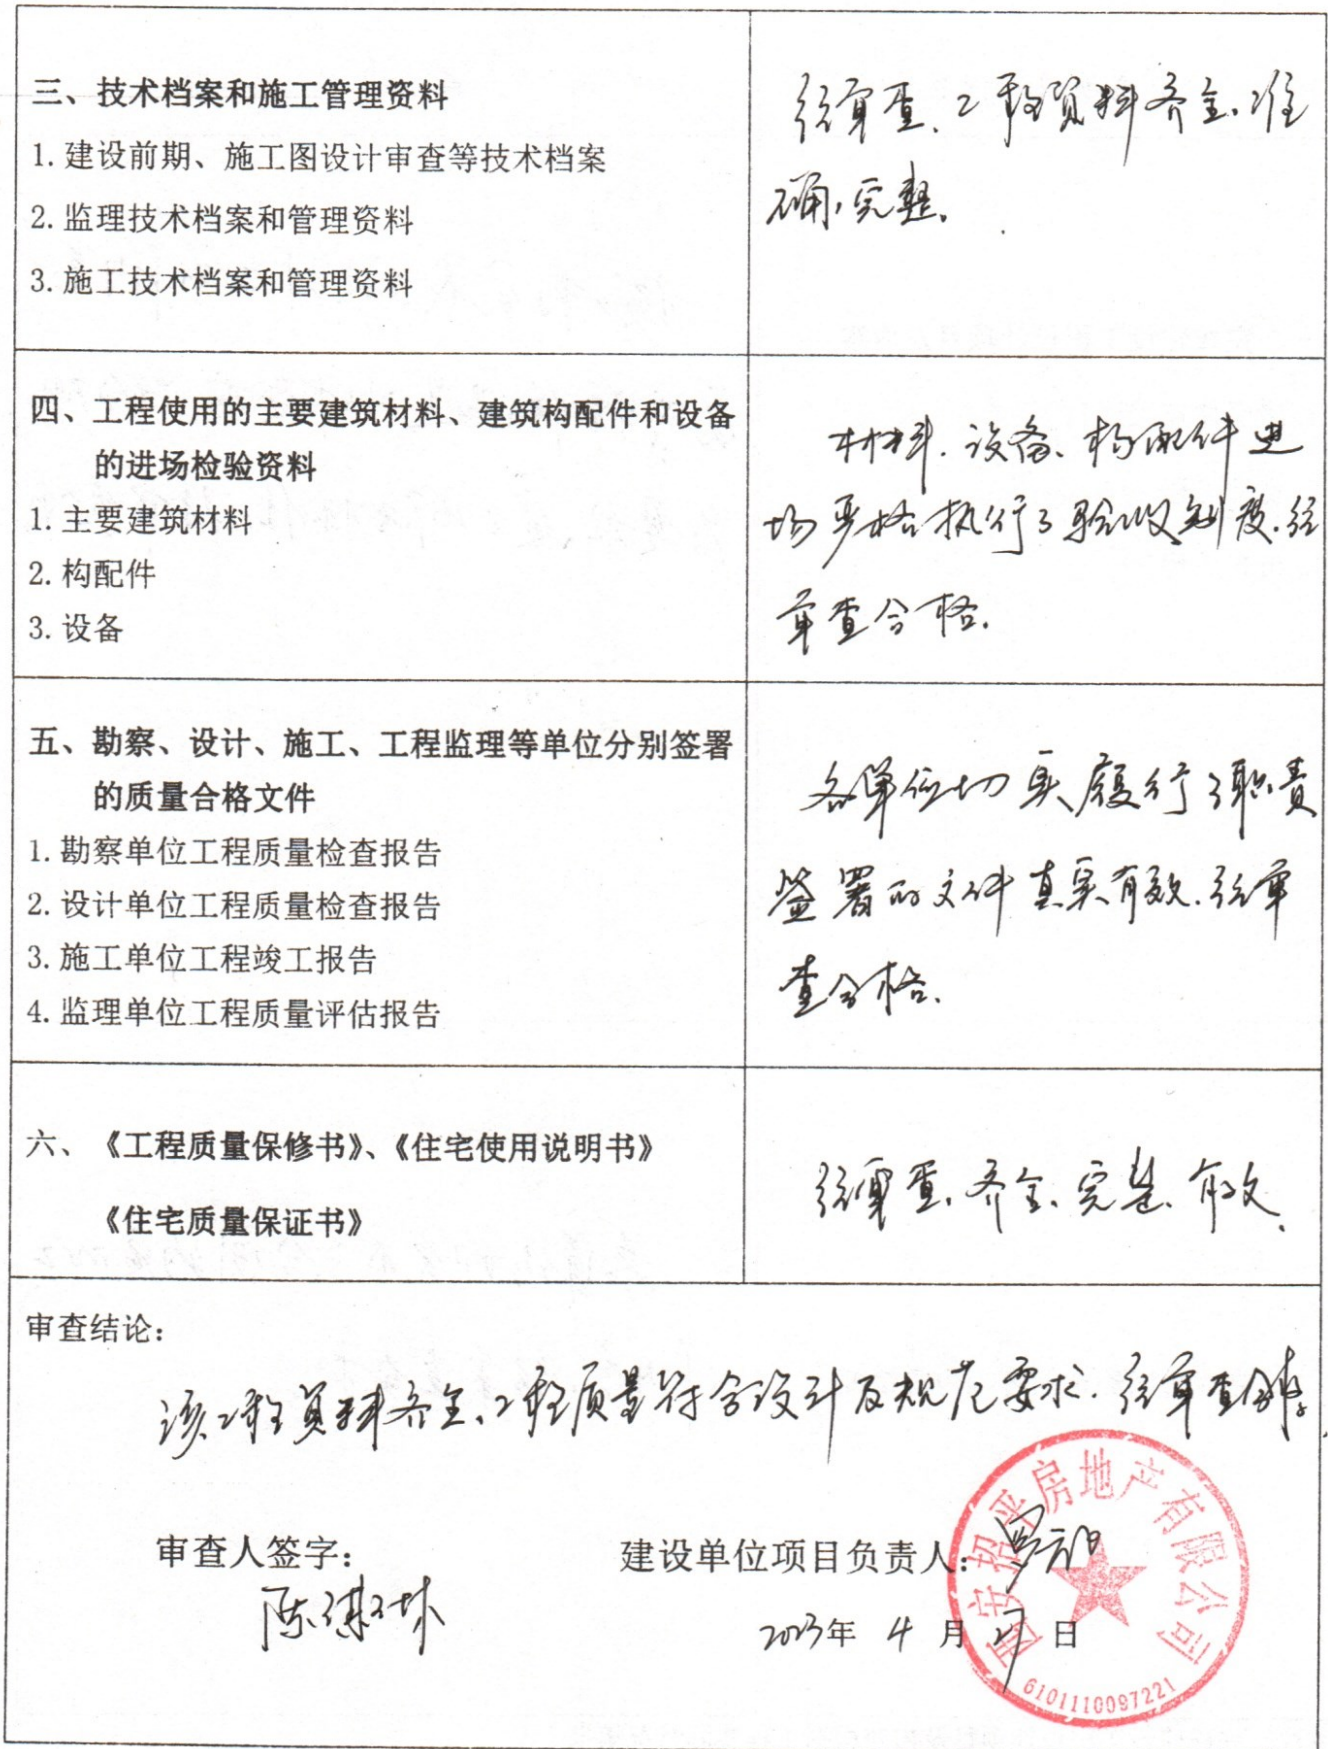 三、技术档案和施工管理资料
1.建设前期、施工图设计审查等技术档案
2.监理技术档案和管理资料
3.施工技术档案和管理资料
经审查、工程资料齐全、准
确、完整。
四、工程使用的主要建筑材料、建筑构配件和设备
的进场检验资料
1.主要建筑材料
2.构配件
3.设备
材料、设备、构配件进
场严格执行了验收制度.经
审查合格.
五、勘察、设计、施工、工程监理等单位分别签署
的质量合格文件
1.勘察单位工程质量检查报告
2.设计单位工程质量检查报告
3.施工单位工程竣工报告
4.监理单位工程质量评估报告
各单位切实履行了职责
签署的文件真实有效.经审
查合格.
六、《工程质量保修书》、《住宅使用说明书》
《住宅质量保证书》
经审查、齐全、完整、有效、
审查结论：
该工程资料齐全、工程质量符合设计及规范要求.经审查合格.
审查人签字：
建设单位项目负责人：
2023年 4 月 27 日
西安招平房地产有限公司
6101110097221